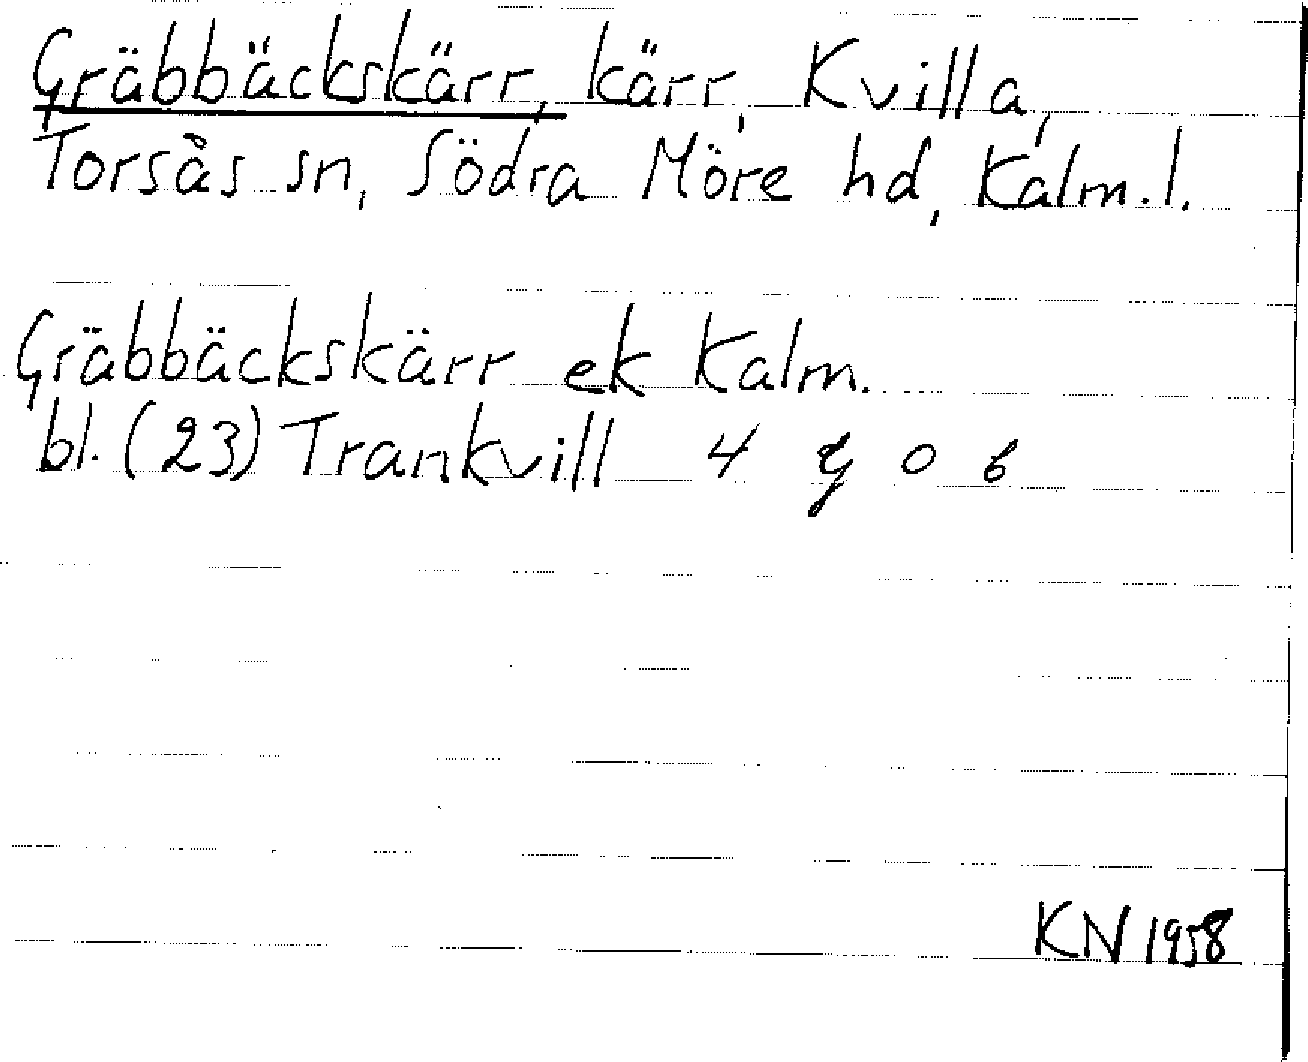 Gräbbäckskärr, kärr, Kvilla,
Torsås sn, Södra Möre hd, Kalm. l.
Gräbbäckskärr ek Kalm.
bl. (23) Trankvill 4 g o b
KN 1958